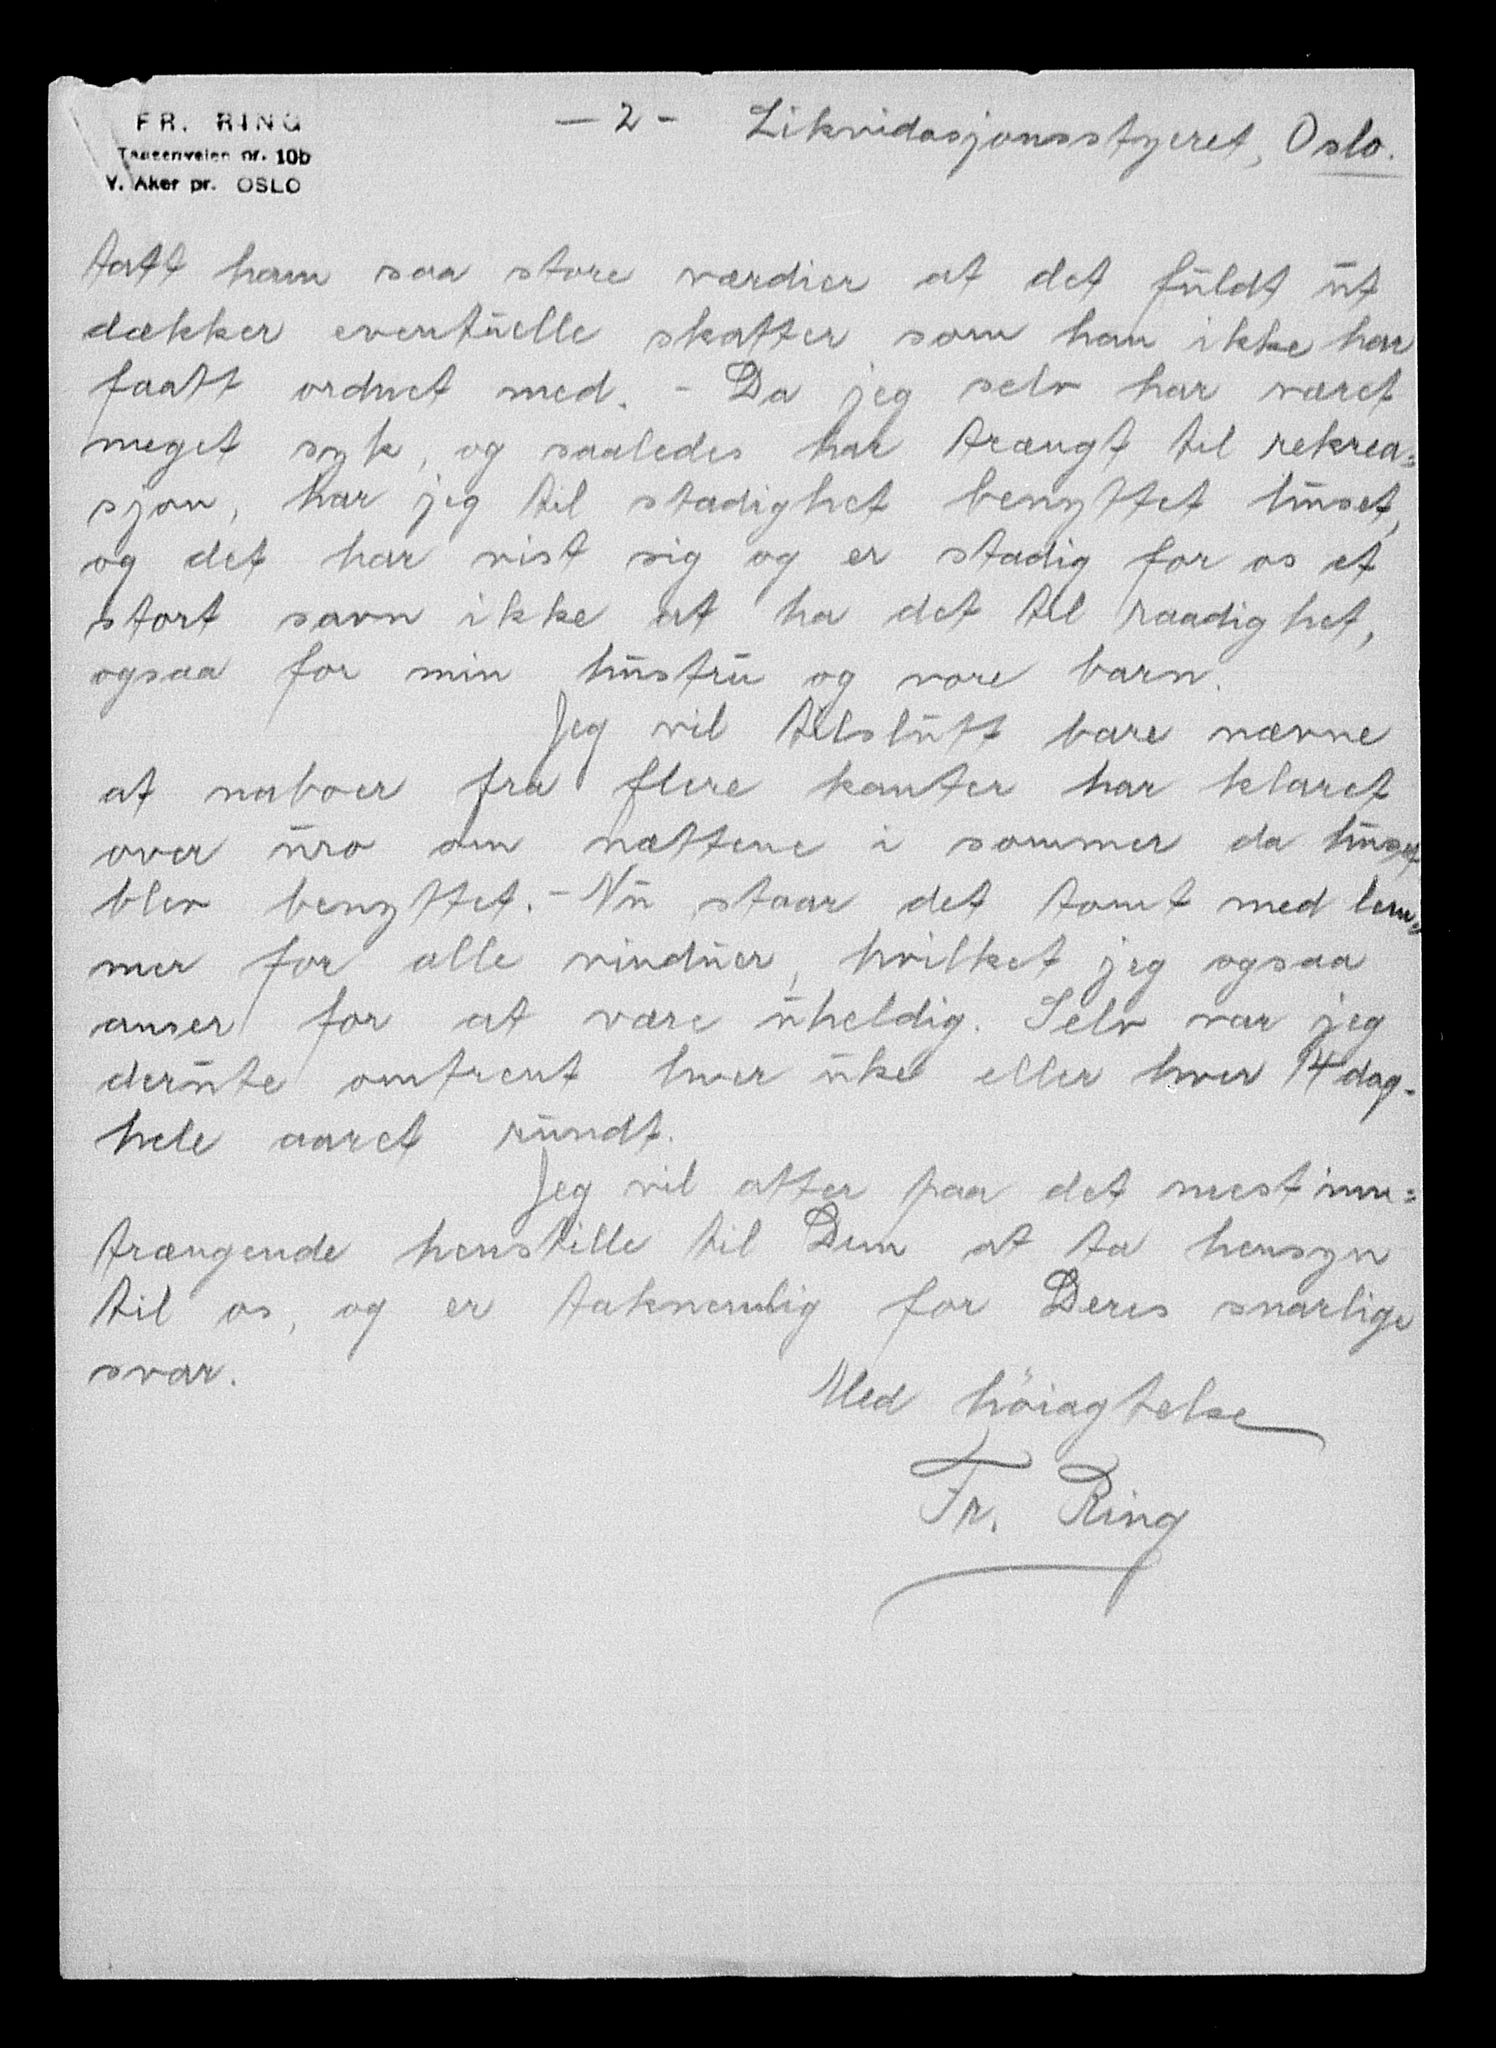 FR. RING
Taasenveien nr. 10b
V. Aker pr. OSLO
— 2 - Likvidasjonsstyret, Oslo.
tatt ham saa store værdier at det fuldt ut
dækker eventuelle skatter som han ikke har
faatt ordnet med. - Da jeg selv har været
meget syk, og saaledes har trængt til rekrea=
sjon, har jeg til stadighet benyttet huset,
og det har vist sig og er stadig for os et
stort savn ikke at ha det til raadighet,
ogsaa for min hustru og vore barn.
Jeg vil tilslutt bare nævne
at naboer fra flere kanter har klaret
over uro om nættene i sommer da huset
blev benyttet. - Nu staar det tomt med lem=
mer for alle vinduer, hvilket jeg ogsaa
anser for at være uheldig. Selv var jeg
derute omtrent hver uke eller hver 14 dag.
hele aaret rundt.
Jeg vil atter paa det mest inn=
trængende henstille til Dem at ta hensyn
til os, og er taknemlig for Deres snarlige
svar.
Med höiagtelse
Fr. Ring